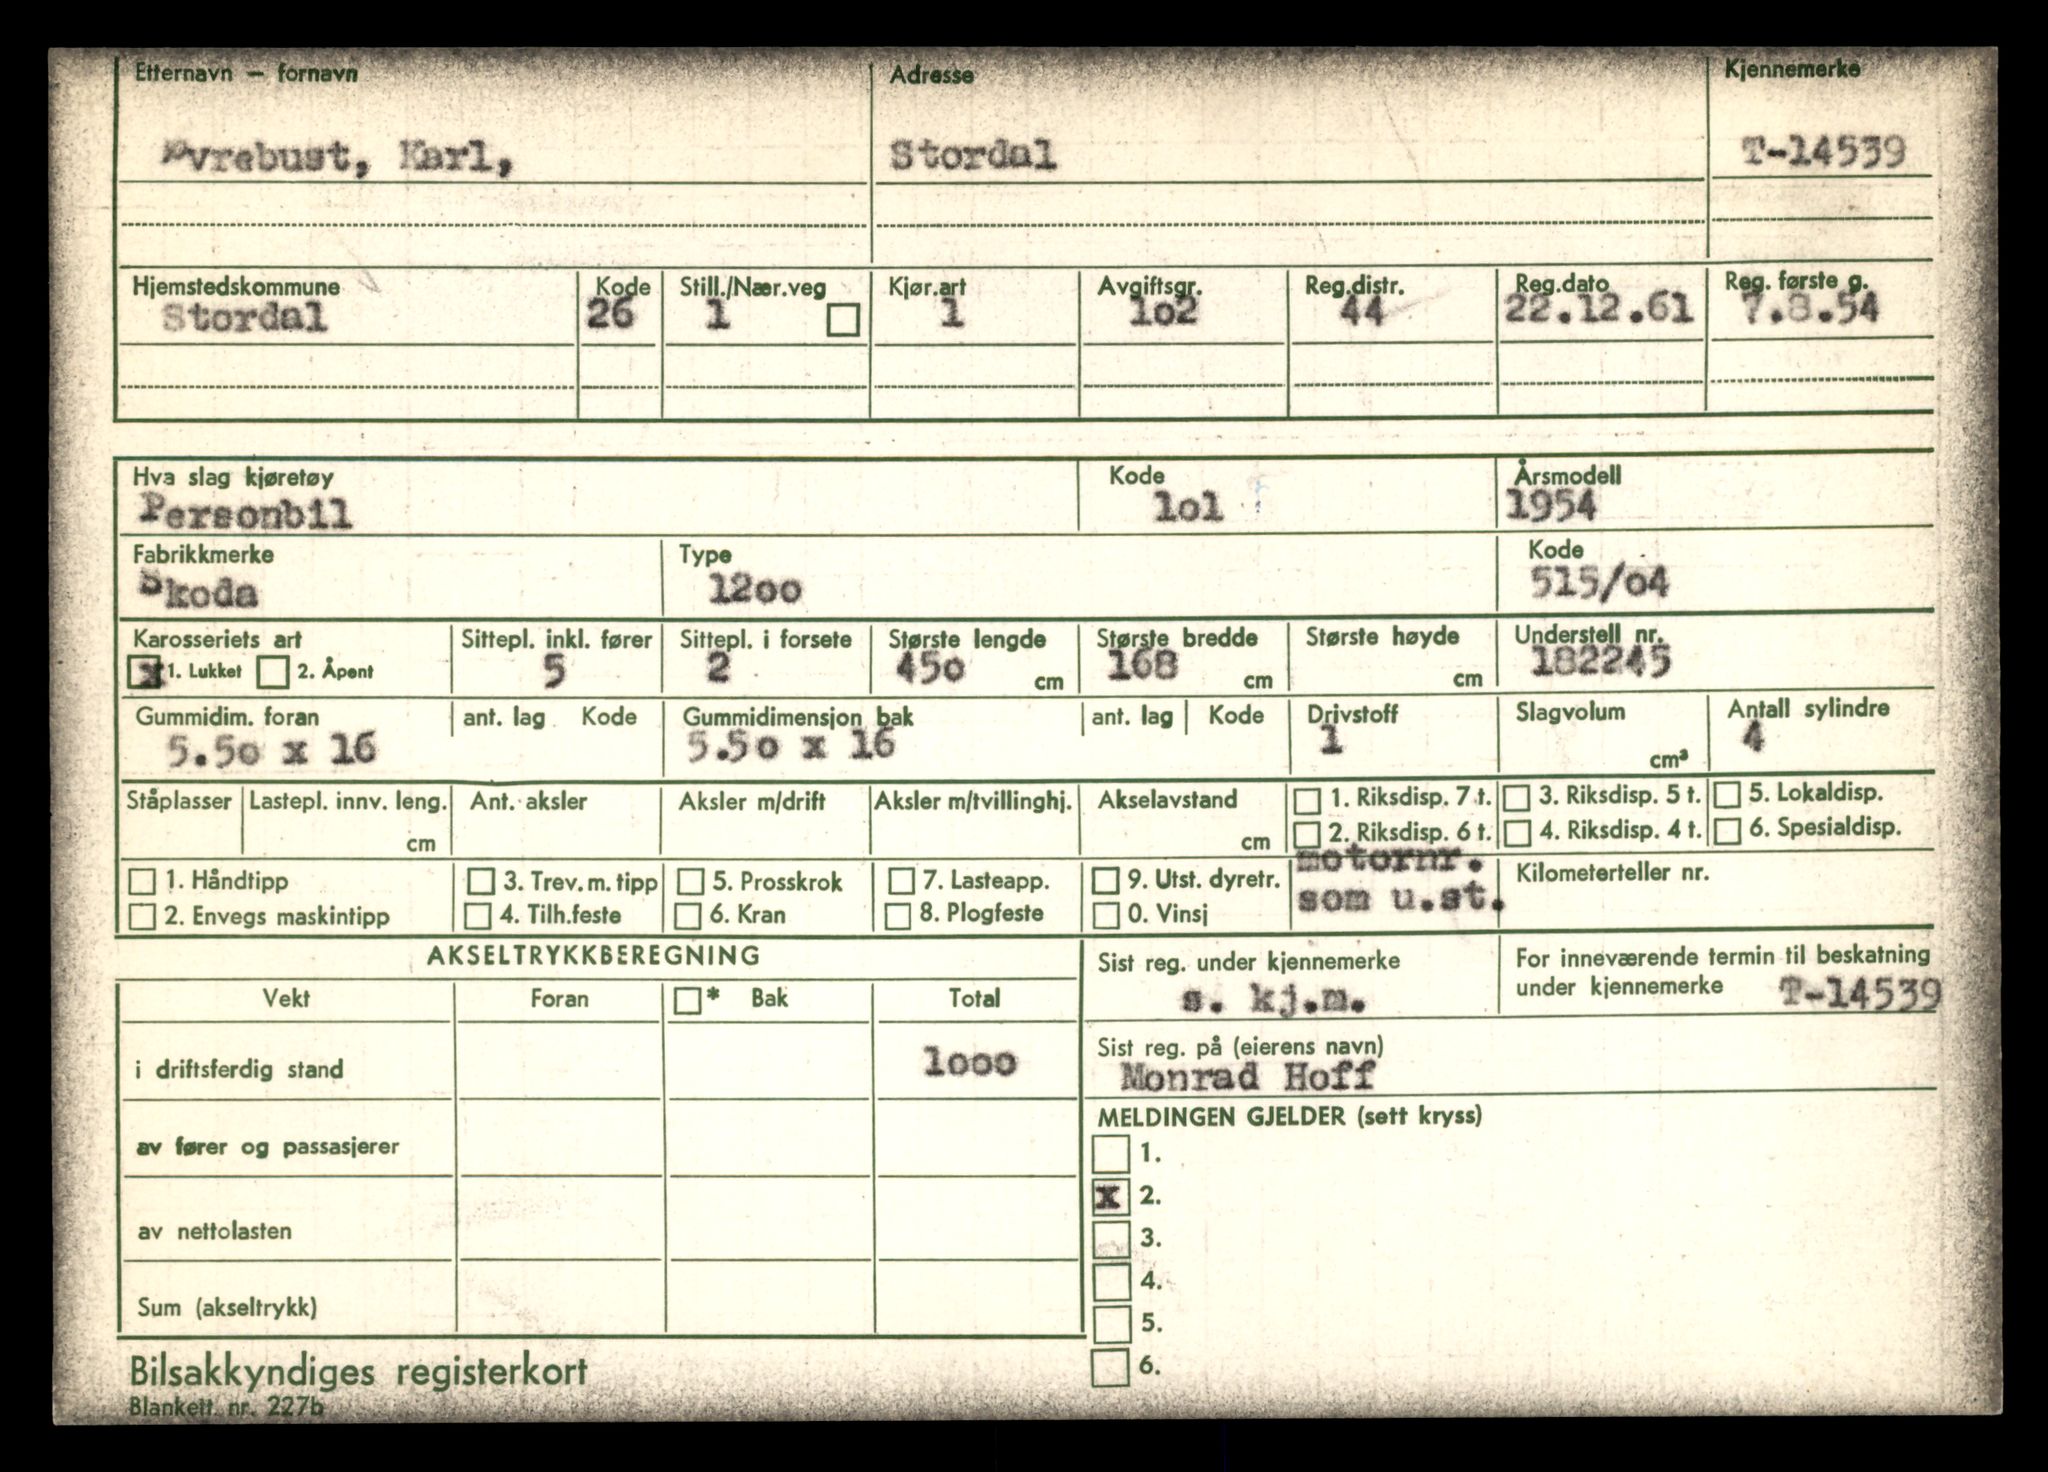 Etternavn – fornavn Adresse Kjennemerke
Øvrebust, Karl, Stordal T-14539
Hjemstedskommune Kode Still./Nær.veg Kjør.art Avgiftsgr. Reg.distr. Reg.dato Reg. første g.
Stordal 26 1 1 1o2 44 22.12.61 7.8.54
Hva slag kjøretøy Kode Årsmodell
Personbil 1o1 1954
Fabrikkmerke Type Kode
Skoda 12oo 515/o4
Karosseriets art Sittepl. inkl. fører Sittepl. i forsete Største lengde Største bredde Største høyde Understell nr.
x 1. Lukket 2. Åpent 5 2 45o cm 168 cm cm 182245
Gummidim. foran ant. lag Kode Gummidimensjon bak ant. lag Kode Drivstoff Slagvolum Antall sylindre
5.5o x 16 5.5o x 16 1 cm³ 4
Ståplasser Lastepl. innv. leng. Ant. aksler Aksler m/drift Aksler m/tvillinghj. Akselavstand 1. Riksdisp. 7 t. 3. Riksdisp. 5 t. 5. Lokaldisp.
cm cm 2. Riksdisp. 6 t. 4. Riksdisp. 4 t. 6. Spesialdisp.
1. Håndtipp 3. Trev. m. tipp 5. Prosskrok 7. Lasteapp. 9. Utst. dyretr. motornr. Kilometerteller nr.
2. Envegs maskintipp 4. Tilh.feste 6. Kran 8. Plogfeste 0. Vinsj som u.st.
AKSELTRYKKBEREGNING
Sist reg. under kjennemerke For inneværende termin til beskatning
s. kj.m. under kjennemerke T-14539
Vekt Foran * Bak Total
i driftsferdig stand 1ooo
Sist reg. på (eierens navn)
Monrad Hoff
MELDINGEN GJELDER (sett kryss)
av fører og passasjerer
1.
x 2.
av nettolasten
3.
4.
Sum (akseltrykk)
5.
6.
Bilsakkyndiges registerkort
Blankett nr. 227b